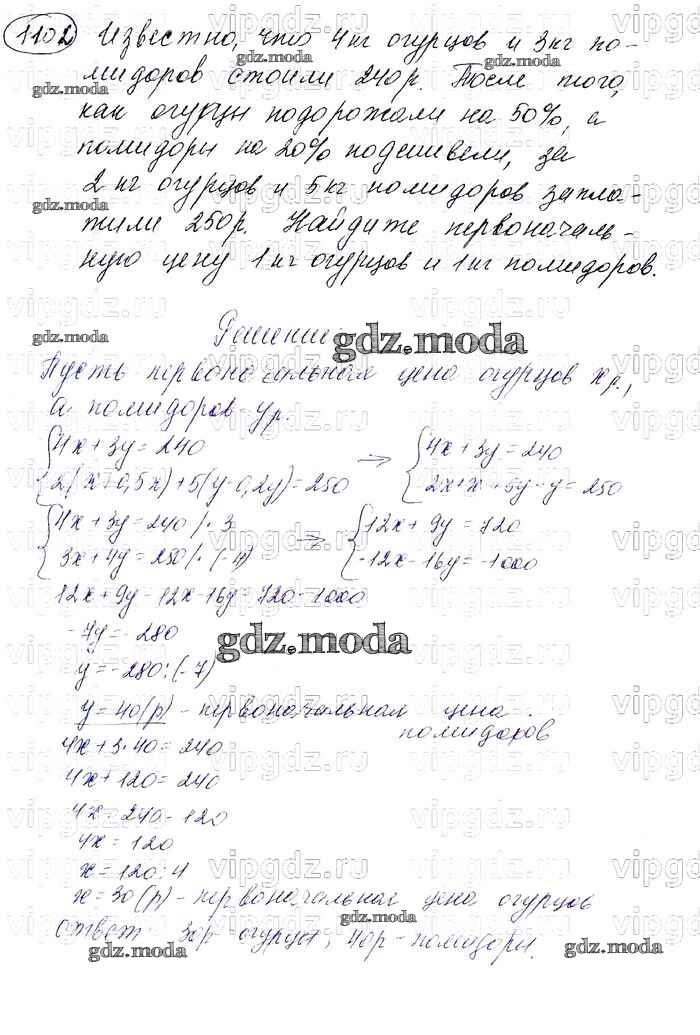 1102 Известно, что 4кг огурцов и 3кг по-
мидоров стоили 240р. После того,
как огурцы подорожали на 50%, а
помидоры на 20% подешевели, за
2 кг огурцов и 5кг помидоров запла-
тили 250р. Найдите первоначаль-
ную цену 1кг огурцов и 1кг помидоров.
Решение:
Пусть первоначальная цена огурцов xр.,
а помидоров - yр.
4x+3y=240 → 4x+3y=240
2(x+0,5x)+5(y-0,2y)=250 2x+x+5y-y=250
4x+3y=240 /·3 → 12x+9y=720
3x+4y=250 /·(-4) -12x-16y=-1000
12x+9y-12x-16y=720-1000
-7y=-280
y=-280:(-7)
y=40(р) - первоначальная цена
помидоров
4x+3·40=240
4x+120=240
4x=240-120
4x=120
x=120:4
x=30(р) - первоначальная цена огурцов
Ответ: 30р огурцы, 40р - помидоры.
gdz.moda
vipgdz.ru